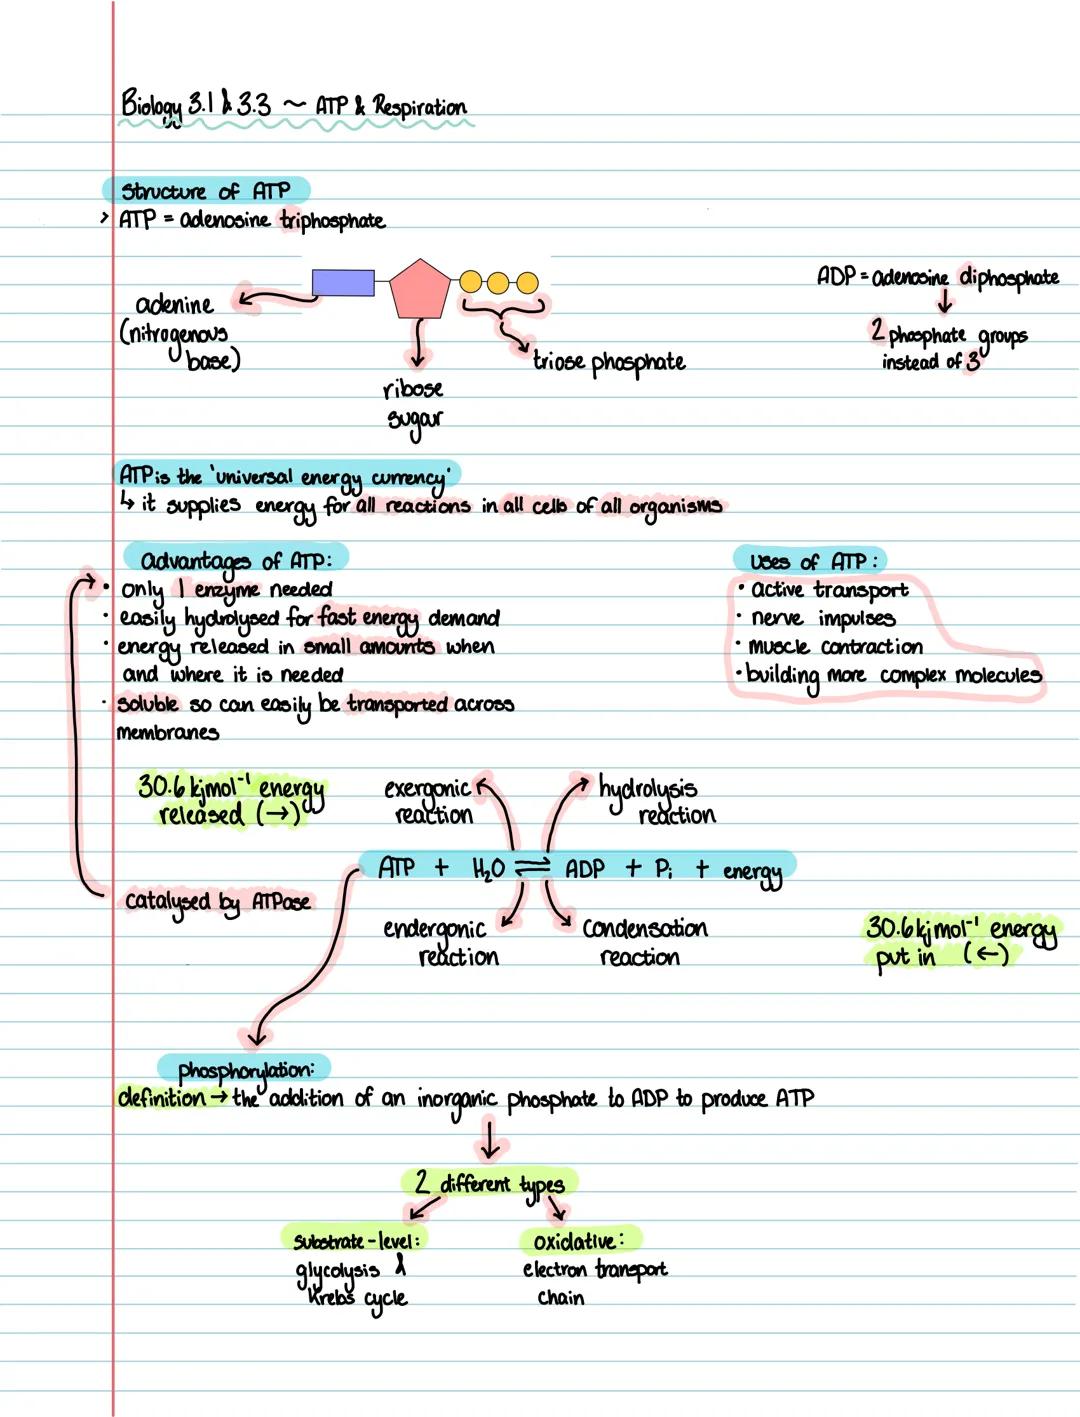 Biology 3.1 & 3.3 ~ ATP & Respiration
Structure of ATP
> ATP = adenosine triphosphate
ADP = adenosine diphosphate
↓
2 phosphate groups
instead of 3
adenine
(nitrogenous
base)
ribose
sugar
triose phosphate
ATP is the 'universal energy currency'
↳ it supplies energy for all reactions in all cells of all organisms
advantages of ATP:
• only 1 enzyme needed
• easily hydrolysed for fast energy demand
• energy released in small amounts when
and where it is needed
• soluble so can easily be transported across
membranes
uses of ATP:
• active transport
• nerve impulses
• muscle contraction
• building more complex molecules
30.6 kjmol⁻¹ energy
released (→)
exergonic
reaction
hydrolysis
reaction
ATP + H₂O ⇌ ADP + Pi + energy
catalysed by ATPase
endergonic
reaction
condensation
reaction
30.6 kjmol⁻¹ energy
put in (←)
phosphorylation:
definition → the addition of an inorganic phosphate to ADP to produce ATP
2 different types
substrate-level:
glycolysis &
Krebs cycle
oxidative:
electron transport
chain